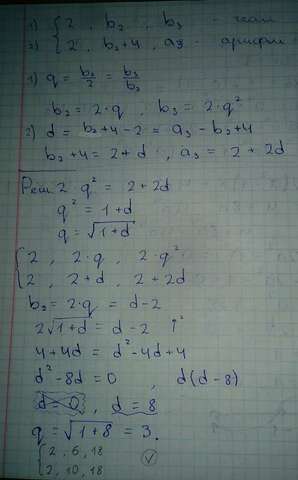 1) { 2 , b₂ , b₃ - геом
2) { 2 , b₂+4 , a₃ - арифм
1) q = b₂/2 = b₃/b₂
b₂ = 2·q , b₃ = 2·q²
2) d = b₂+4-2 = a₃-b₂+4
b₂+4=2+d , a₃ = 2+2d
Реш 2·q² = 2+2d
q² = 1+d
q = √(1+d)
{ 2 , 2·q , 2·q²
2 , 2+d , 2+2d
b₂ = 2·q = d-2
2√(1+d) = d-2 ↑²
4+4d = d²-4d+4
d²-8d=0 , d(d-8)
d=0 , d=8
q = √(1+8) = 3.
{ 2, 6, 18
2, 10, 18